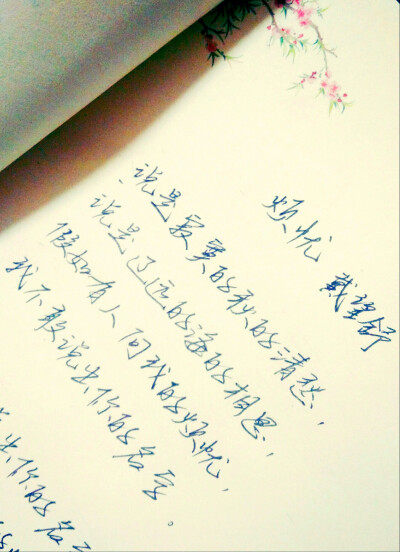 烦忧
戴望舒
说是寂寞的秋的清愁，
说是辽远的海的相思，
假如有人问我的烦忧，
我不敢说出你的名字。
出你的名